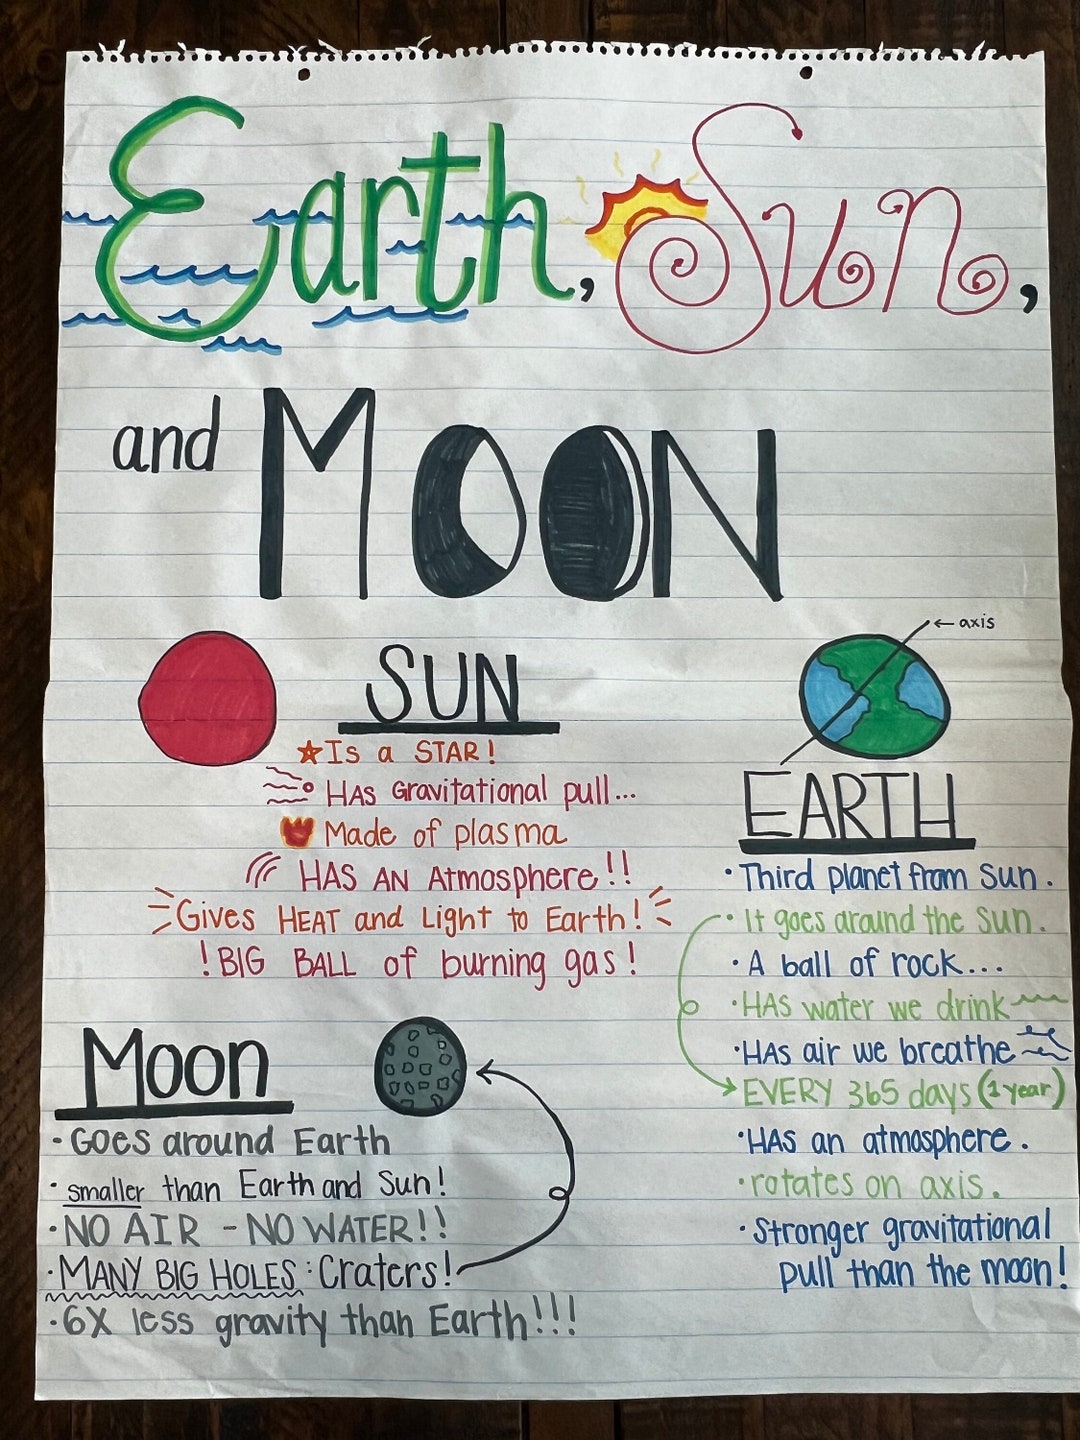 Earth, Sun,
and MOON
SUN
Is a STAR!
HAS Gravitational pull...
Made of plasma
HAS AN Atmosphere!!
Gives HEAT and Light to Earth!
!BIG BALL of burning gas!
← axis
EARTH
• Third planet from Sun.
• It goes around the Sun.
• A ball of rock...
• HAS water we drink
• HAS air we breathe
EVERY 365 days (1 year)
• HAS an atmosphere.
• rotates on axis.
• Stronger gravitational
pull than the moon!
Moon
• GOES around Earth
• smaller than Earth and Sun!
• NO AIR - NO WATER!!
• MANY BIG HOLES: Craters!
• 6X less gravity than Earth!!!